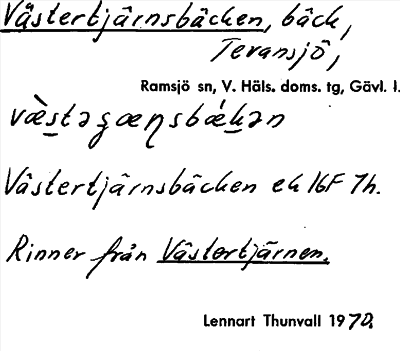 Västertjärnsbäcken, bäck,
Tevansjö,
Ramsjö sn, V. Häls. doms. tg, Gävl. l.
Västertjärnsbäcken ek 16F 7h.
Rinner från Västertjärnen.
Lennart Thunvall 1970.